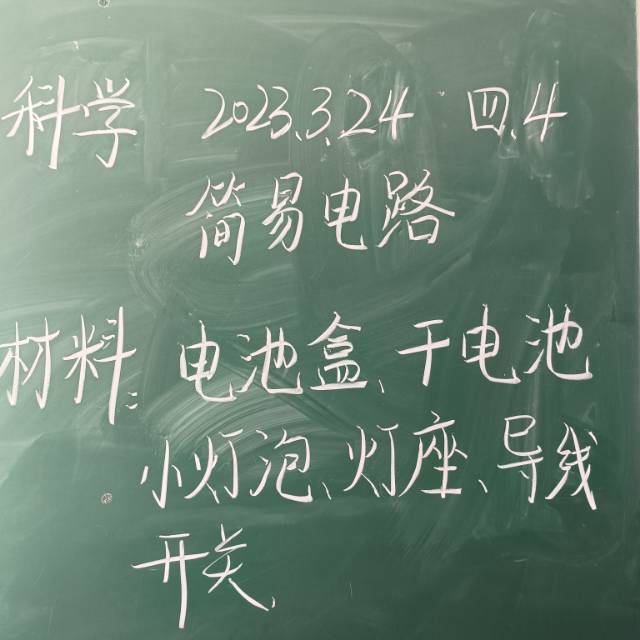 科学 2023.3.24 四.4
简易电路
材料: 电池盒、干电池
小灯泡、灯座、导线
开关、